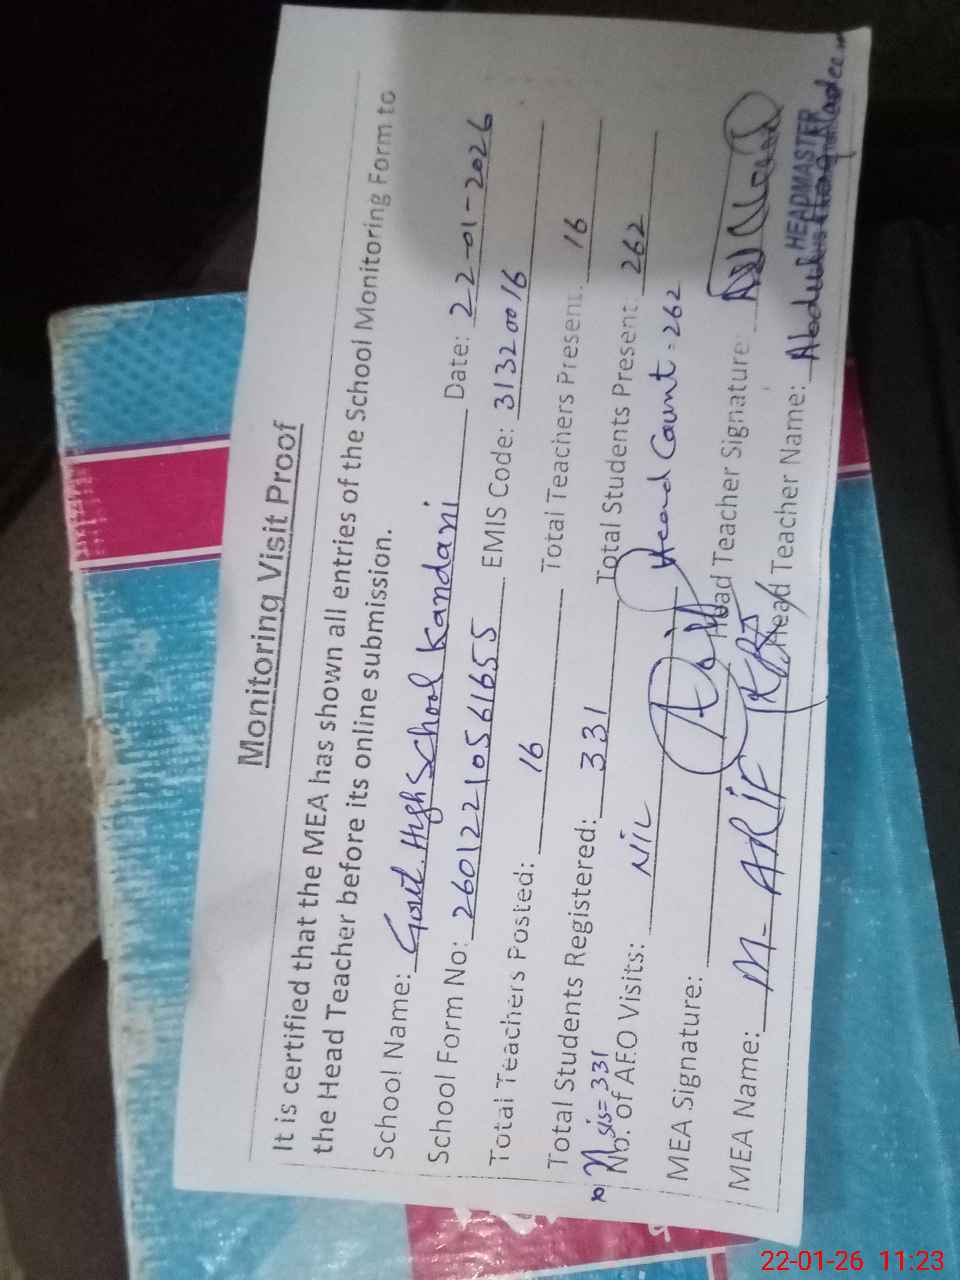 Monitoring Visit Proof
It is certified that the MEA has shown all entries of the School Monitoring Form to
the Head Teacher before its online submission.
School Name: Govt. High School Kandani Date: 22-01-2026
School Form No: 26012210561655 EMIS Code: 31320016
Total Teachers Posted: 16 Total Teachers Present: 16
Total Students Registered: 331 Total Students Present: 262
sis=331
No. of AEO Visits: NIL Head Count = 262
MEA Signature: Head Teacher Signature:
MEA Name: M-ARIF Head Teacher Name: Abdul
HEADMASTER
22-01-26 11:23